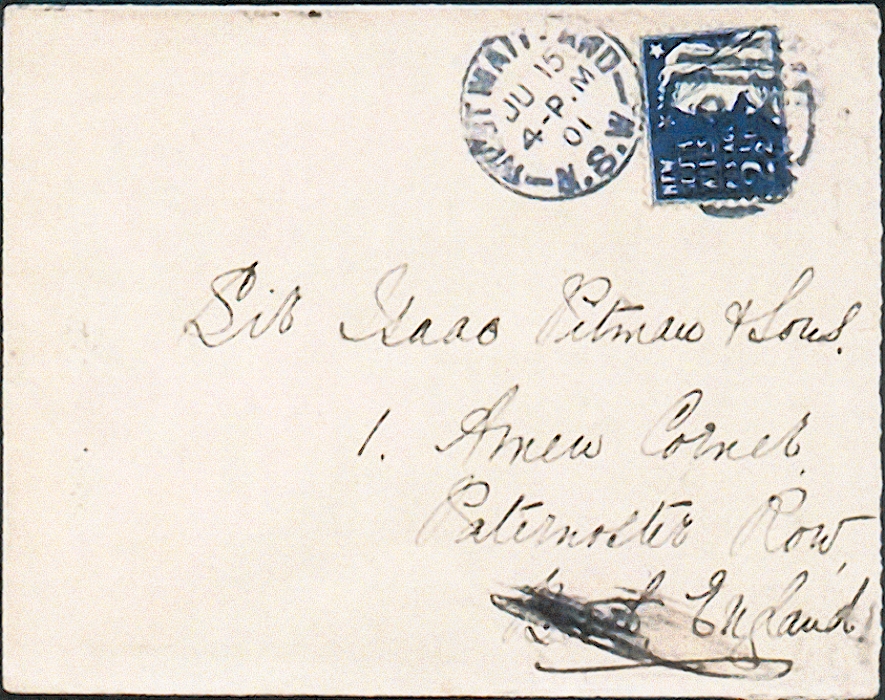 JU 15
4-P.M
01
N.S.W.
NEW
2
Sir Isaac Pitman & Sons.
1. Amen Corner,
Paternoster Row,
England